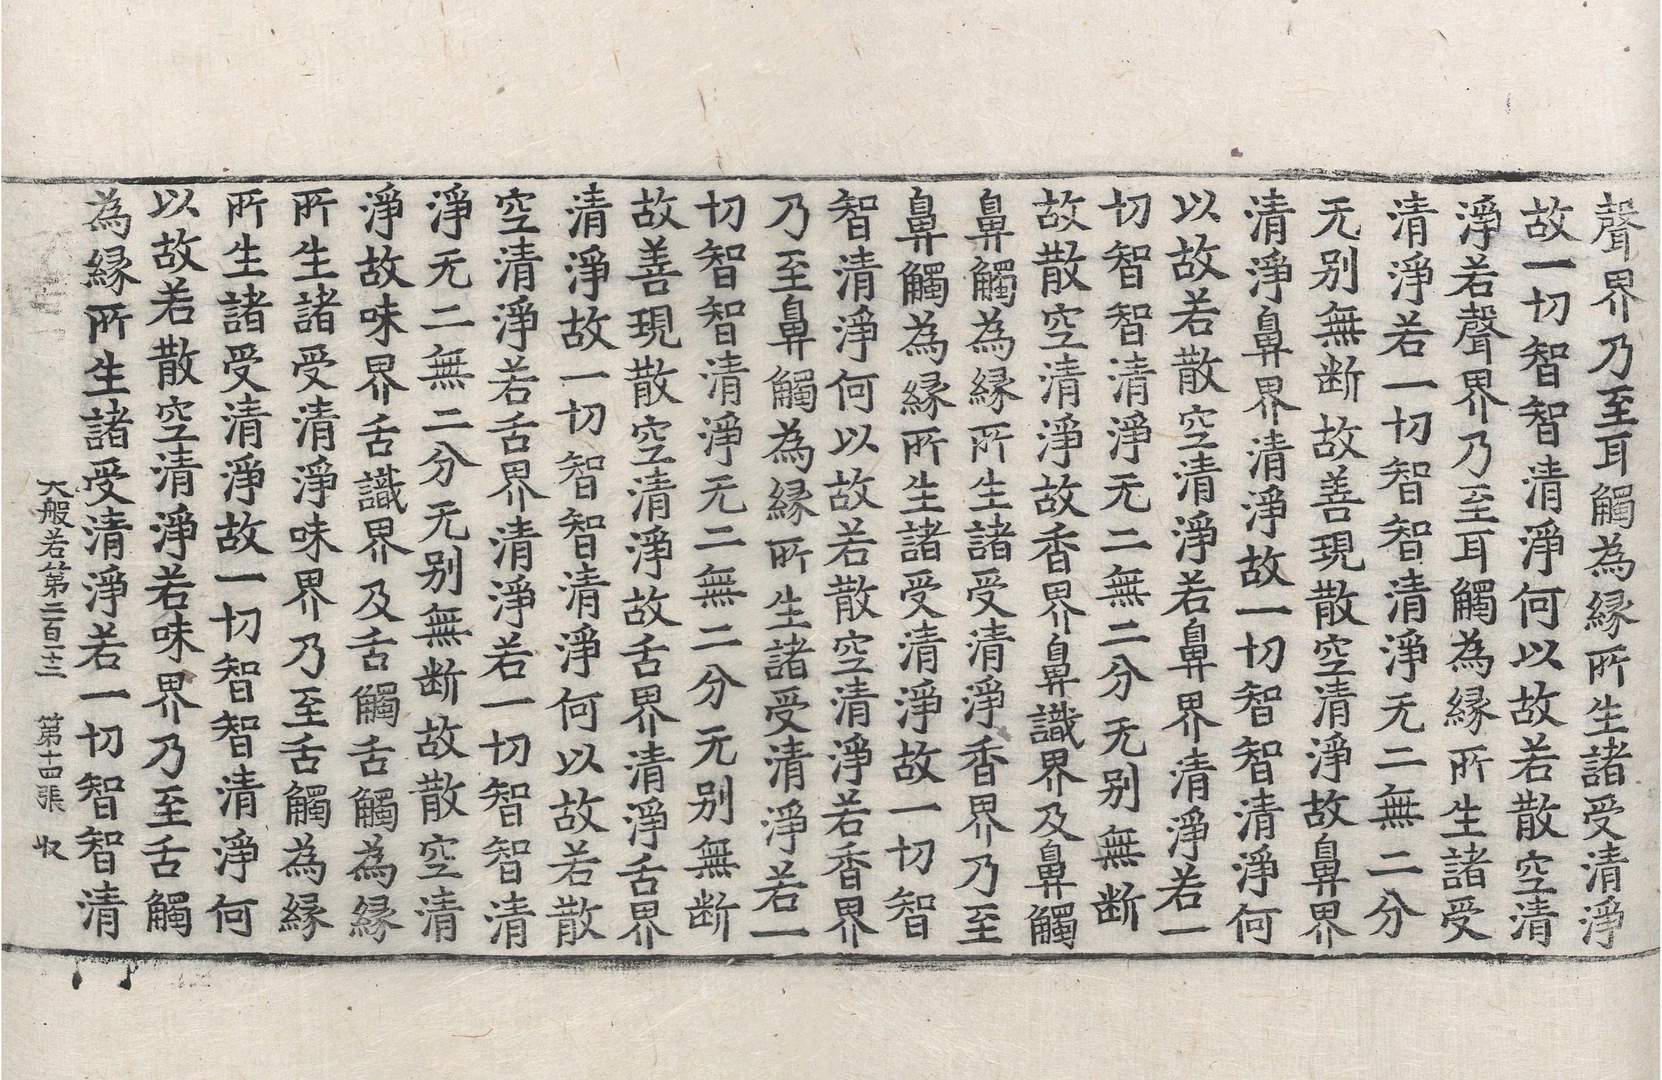 聲界乃至耳觸為縁所生諸受清淨
故一切智智清淨何以故若散空清
淨若聲界乃至耳觸為縁所生諸受
清淨若一切智智清淨无二無二分
无别無断故善現散空清淨故鼻界
清淨鼻界清淨故一切智智清淨何
以故若散空清淨若鼻界清淨若一
切智智清淨无二無二分无别無断
故散空清淨故香界鼻識界及鼻觸
鼻觸為縁所生諸受清淨香界乃至
鼻觸為縁所生諸受清淨故一切智
智清淨何以故若散空清淨若香界
乃至鼻觸為縁所生諸受清淨若一
切智智清淨无二無二分无别無断
故善現散空清淨故舌界清淨舌界
清淨故一切智智清淨何以故若散
空清淨若舌界清淨若一切智智清
淨无二無二分无别無断故散空清
淨故味界舌識界及舌觸舌觸為縁
所生諸受清淨味界乃至舌觸為縁
所生諸受清淨故一切智智清淨何
以故若散空清淨若味界乃至舌觸
為縁所生諸受清淨若一切智智清
大般若第二百一十三 第十四張 收